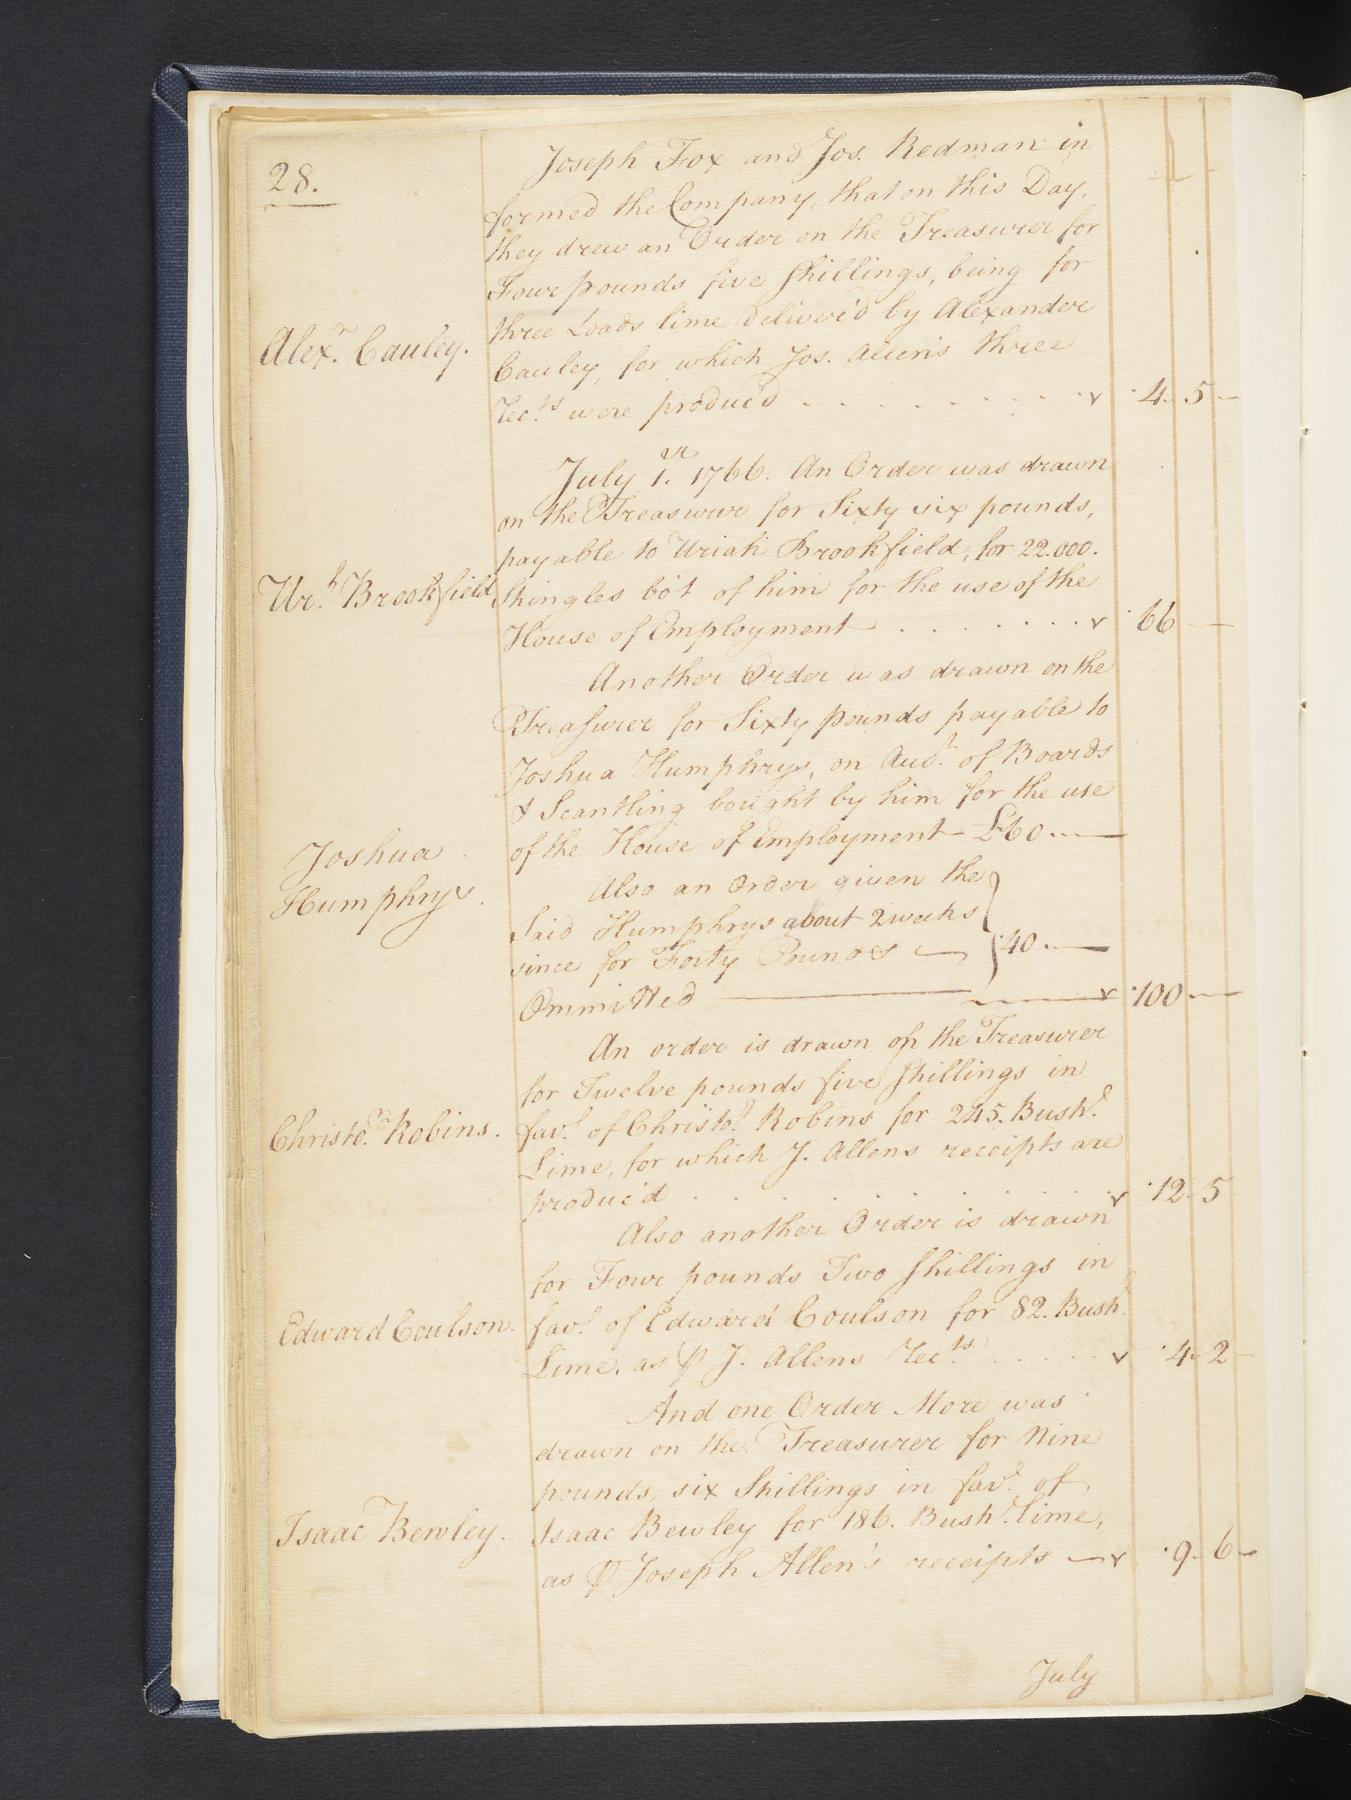 28.
Joseph Fox and Jos. Redman in
formed the Company, that on this Day,
they drew an Order on the Treasurer for
Four pounds five Shillings, being for
three Loads lime deliver'd by Alexander
Alexr. Cauley.
Cauley, for which Jos. Allen's three
Rec~ts were produc'd - - - - - - - - - v 4. 5 -
July 1.st 1766. An Order was drawn
on the Treasurer for Sixty six pounds,
payable to Uriah Brookfield, for 22.000.
Ur.h Brookfield
Shingles bot of him for the use of the
House of Employment . . . . . . . . v 66 -
Another Order was drawn on the
Treasurer for Sixty pounds payable to
Joshua Humphrys, on Acct. of Boards
& Scantling bought by him for the use
of the House of Employment - £60 .. —
Joshua
Humphrys.
Also an Order given the
Said Humphrys about 2 weeks
since for Forty Pounds — 40 . —
Ommitted — v 100 —
An order is drawn on the Treasurer
for Twelve pounds five Shillings in
Christor. Robins.
favr. of Christor. Robins for 245. Bushl.
Lime, for which J. Allens receipts are
produc'd . . . . . . . . . v 12. 5
Also another Order is drawn
for Four pounds Two Shillings in
Edward Coulson.
favr. of Edward Coulson for 82. Bushl.
Lime, as ⅌ J. Allens Rects. . . . . . v 4. 2 -
And one Order More was
drawn on the Treasurer for Nine
pounds, six Shillings in favr. of
Isaac Bewley.
Isaac Bewley for 186. Bushl. lime,
as ⅌ Joseph Allen's receipts — v 9. 6 -
July